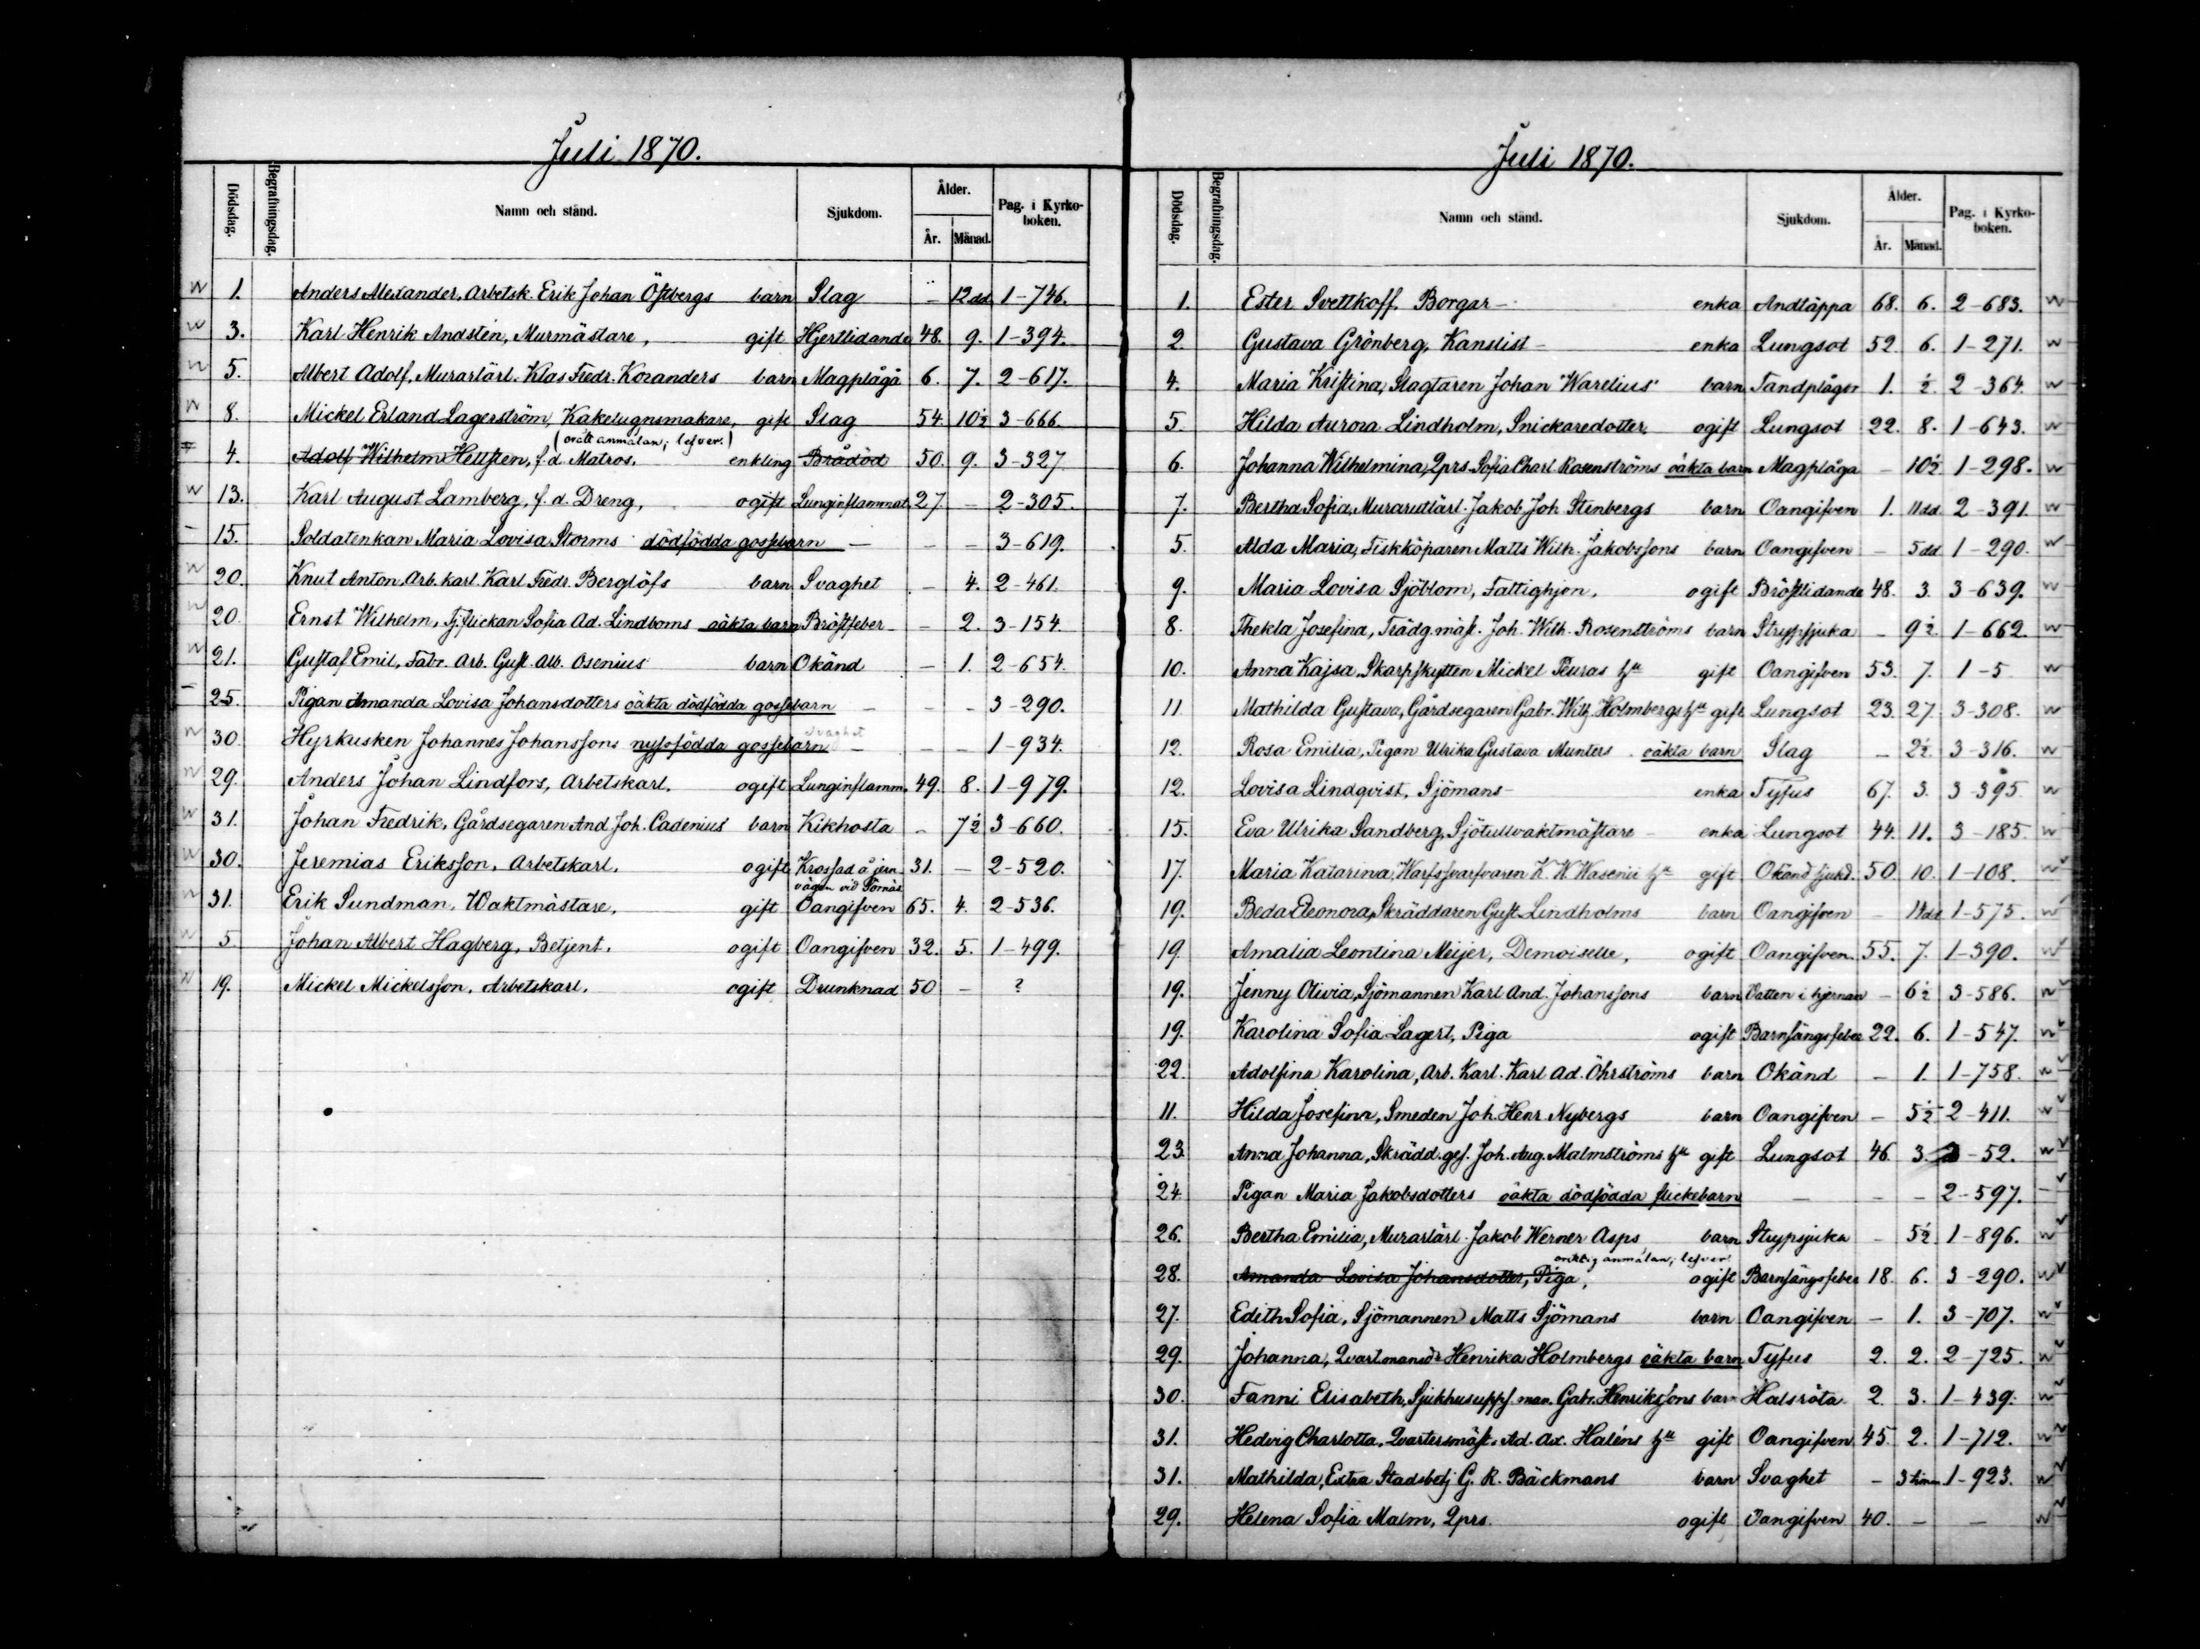 Juli 1870.
Dödsdag. Begrafningsdag. Namn och stånd. Sjukdom. Ålder. År. Månad. Pag. i Kyrkoboken.
1. Anders Alexander, Arbetsk. Erik Johan Östbergs barn Slag – 12 dd. 1-746.
3. Karl Henrik Andstén, Murmästare, gift Hjertlidande 48. 9. 1-394.
5. Albert Adolf, Murarlärl. Klas Fredr. Koranders barn Magplåga 6. 7. 2-617.
8. Mickel Erland Lagerström, Kakelugnsmakare, gift Slag 54. 10½ 3-666.
(orätt anmälan; lefver.)
4. Adolf Wilhelm Hellsten, f.d. Matros. enkling Brådöd 50. 9. 3-327
13. Karl August Lamberg, f.d. Dreng, ogift Lunginflammat. 27. – 2-305.
15. Soldatenkan Maria Lovisa Storms dödfödda gossebarn – – – 3-619.
20. Knut Anton, Arb. karl. Karl Fredr. Berglöfs barn Svaghet – 4. 2-461.
20. Ernst Wilhelm, Tj.flickan Sofia Ad. Lindboms oäkta barn Bröstfeber – 2. 3-154.
21. Gustaf Emil, Fabr. Arb. Gust. Alb. Osenius barn Okänd – 1. 2-654.
25. Pigan Amanda Lovisa Johansdotters oäkta dödfödda gossebarn – – – 3-290.
30. Hyrkusken Johannes Johanssons nyssfödda gossebarn svaghet – – – 1-934.
29. Anders Johan Lindfors, Arbetskarl. ogift Lunginflamm. 49. 8. 1-979.
31. Johan Fredrik, Gårdsegaren And. Joh. Cadenius barn Kikhosta – 7½ 3-660.
30. Jeremias Eriksson, Arbetskarl. ogift Krossad å jern- 31. – 2-520.
vägen vid Sörnäs
31. Erik Sundman, Waktmästare. gift Oangifven 65. 4. 2-536.
5. Johan Albert Hagberg, Betjent. ogift Oangifven 32. 5. 1-499.
19. Mickel Mickelsson, Arbetskarl. ogift Drunknad 50 – ?
Juli 1870.
Dödsdag. Begrafningsdag. Namn och stånd. Sjukdom. Ålder. År. Månad. Pag. i Kyrkoboken.
1. Ester Svettkoff, Borgar- enka Andtäppa 68. 6. 2-683.
2. Gustava Grönberg, Kanslist- enka Lungsot 52. 6. 1-271.
4. Maria Kristina, Slagtaren Johan Warelius barn Tandplågor 1. ½. 2-364.
5. Hilda Aurora Lindholm, Snickaredotter. ogift Lungsot 22. 8. 1-643.
6. Johanna Wilhelmina, Qprs. Sofia Charl. Rosenströms oäkta barn Magplåga – 10½ 1-298.
7. Bertha Sofia, Murarutlärl. Jakob Joh. Stenbergs barn Oangifven 1. 11 dd. 2-391.
5. Alda Maria, Fiskköparen Matts Wilh. Jakobssons barn Oangifven – 5 dd. 1-290.
9. Maria Lovisa Sjöblom, Fattighjon, ogift Bröstlidande 48. 3. 3-639.
8. Thekla Josefina, Trädg.mäst. Joh. Wilh. Rosenströms barn Strypsjuka – 9½. 1-662.
10. Anna Kajsa, Skarpskytten Mickel Peuras hu gift Oangifven 53. 7. 1-5
11. Mathilda Gustava, Gårdsegaren Gabr. Wilh. Holmbergs hu gift Lungsot 23. 27. 3-308.
12. Rosa Emilia, Pigan Ulrika Gustava Munters oäkta barn Slag – 2½. 3-316.
12. Lovisa Lindqvist, Sjömans- enka Tyfus 67. 3. 3-395
15. Eva Ulrika Sandberg, Sjötullvaktmästare- enka Lungsot 44. 11. 3-185.
17. Maria Katarina, Warfssvarfvaren K. W. Wasenii hu gift Okänd sjukd. 50. 10. 1-108.
19. Beda Eleonora, Skräddaren Gust. Lindholms barn Oangifven – 11 dd. 1-575.
19. Amalia Leontina Meijer, Demoiselle, ogift Oangifven. 55. 7. 1-390.
19. Jenny Olivia, Sjömannen Karl And. Johanssons barn Vatten i hjernan – 6½ 3-586.
19. Karolina Sofia Lagert, Piga ogift Barnsängsfeber 22. 6. 1-547.
22. Adolfina Karolina, Arb. Karl. Karl Ad. Öhrströms barn Okänd – 1. 1-758.
11. Hilda Josefina, Smeden Joh. Henr. Nybergs barn Oangifven – 5½ 2-411.
23. Anna Johanna, Skrädd.ges. Joh. Aug. Malmströms hu gift Lungsot 46. 3. 3-52.
24. Pigan Maria Jakobsdotters oäkta dödfödda flickebarn – – – 2-597.
26. Bertha Emilia, Murarlärl. Jakob Werner Asps barn Strypsjuka – 5½ 1-896.
oriktig anmälan, lefver.
28. Amanda Lovisa Johansdotter, Piga, ogift Barnsängsfeber 18. 6. 3-290.
27. Edith Sofia, Sjömannen Matts Sjömans barn Oangifven – 1. 3-707.
29. Johanna, Qvartmansdr Henrika Holmbergs oäkta barn Tyfus 2. 2. 2-725.
30. Fanni Elisabeth, Sjukhusupps.man. Gabr. Henrikssons barn Halsröta 2. 3. 1-439.
31. Hedvig Charlotta, Qvartersmäst. Ad. Ax. Haléns hu gift Oangifven 45. 2. 1-712.
31. Mathilda, Extra Stadsbetj. G. R. Bäckmans barn Svaghet – 3 timm 1-923.
29. Helena Sofia Malm, Qprs. ogift Oangifven 40. – –